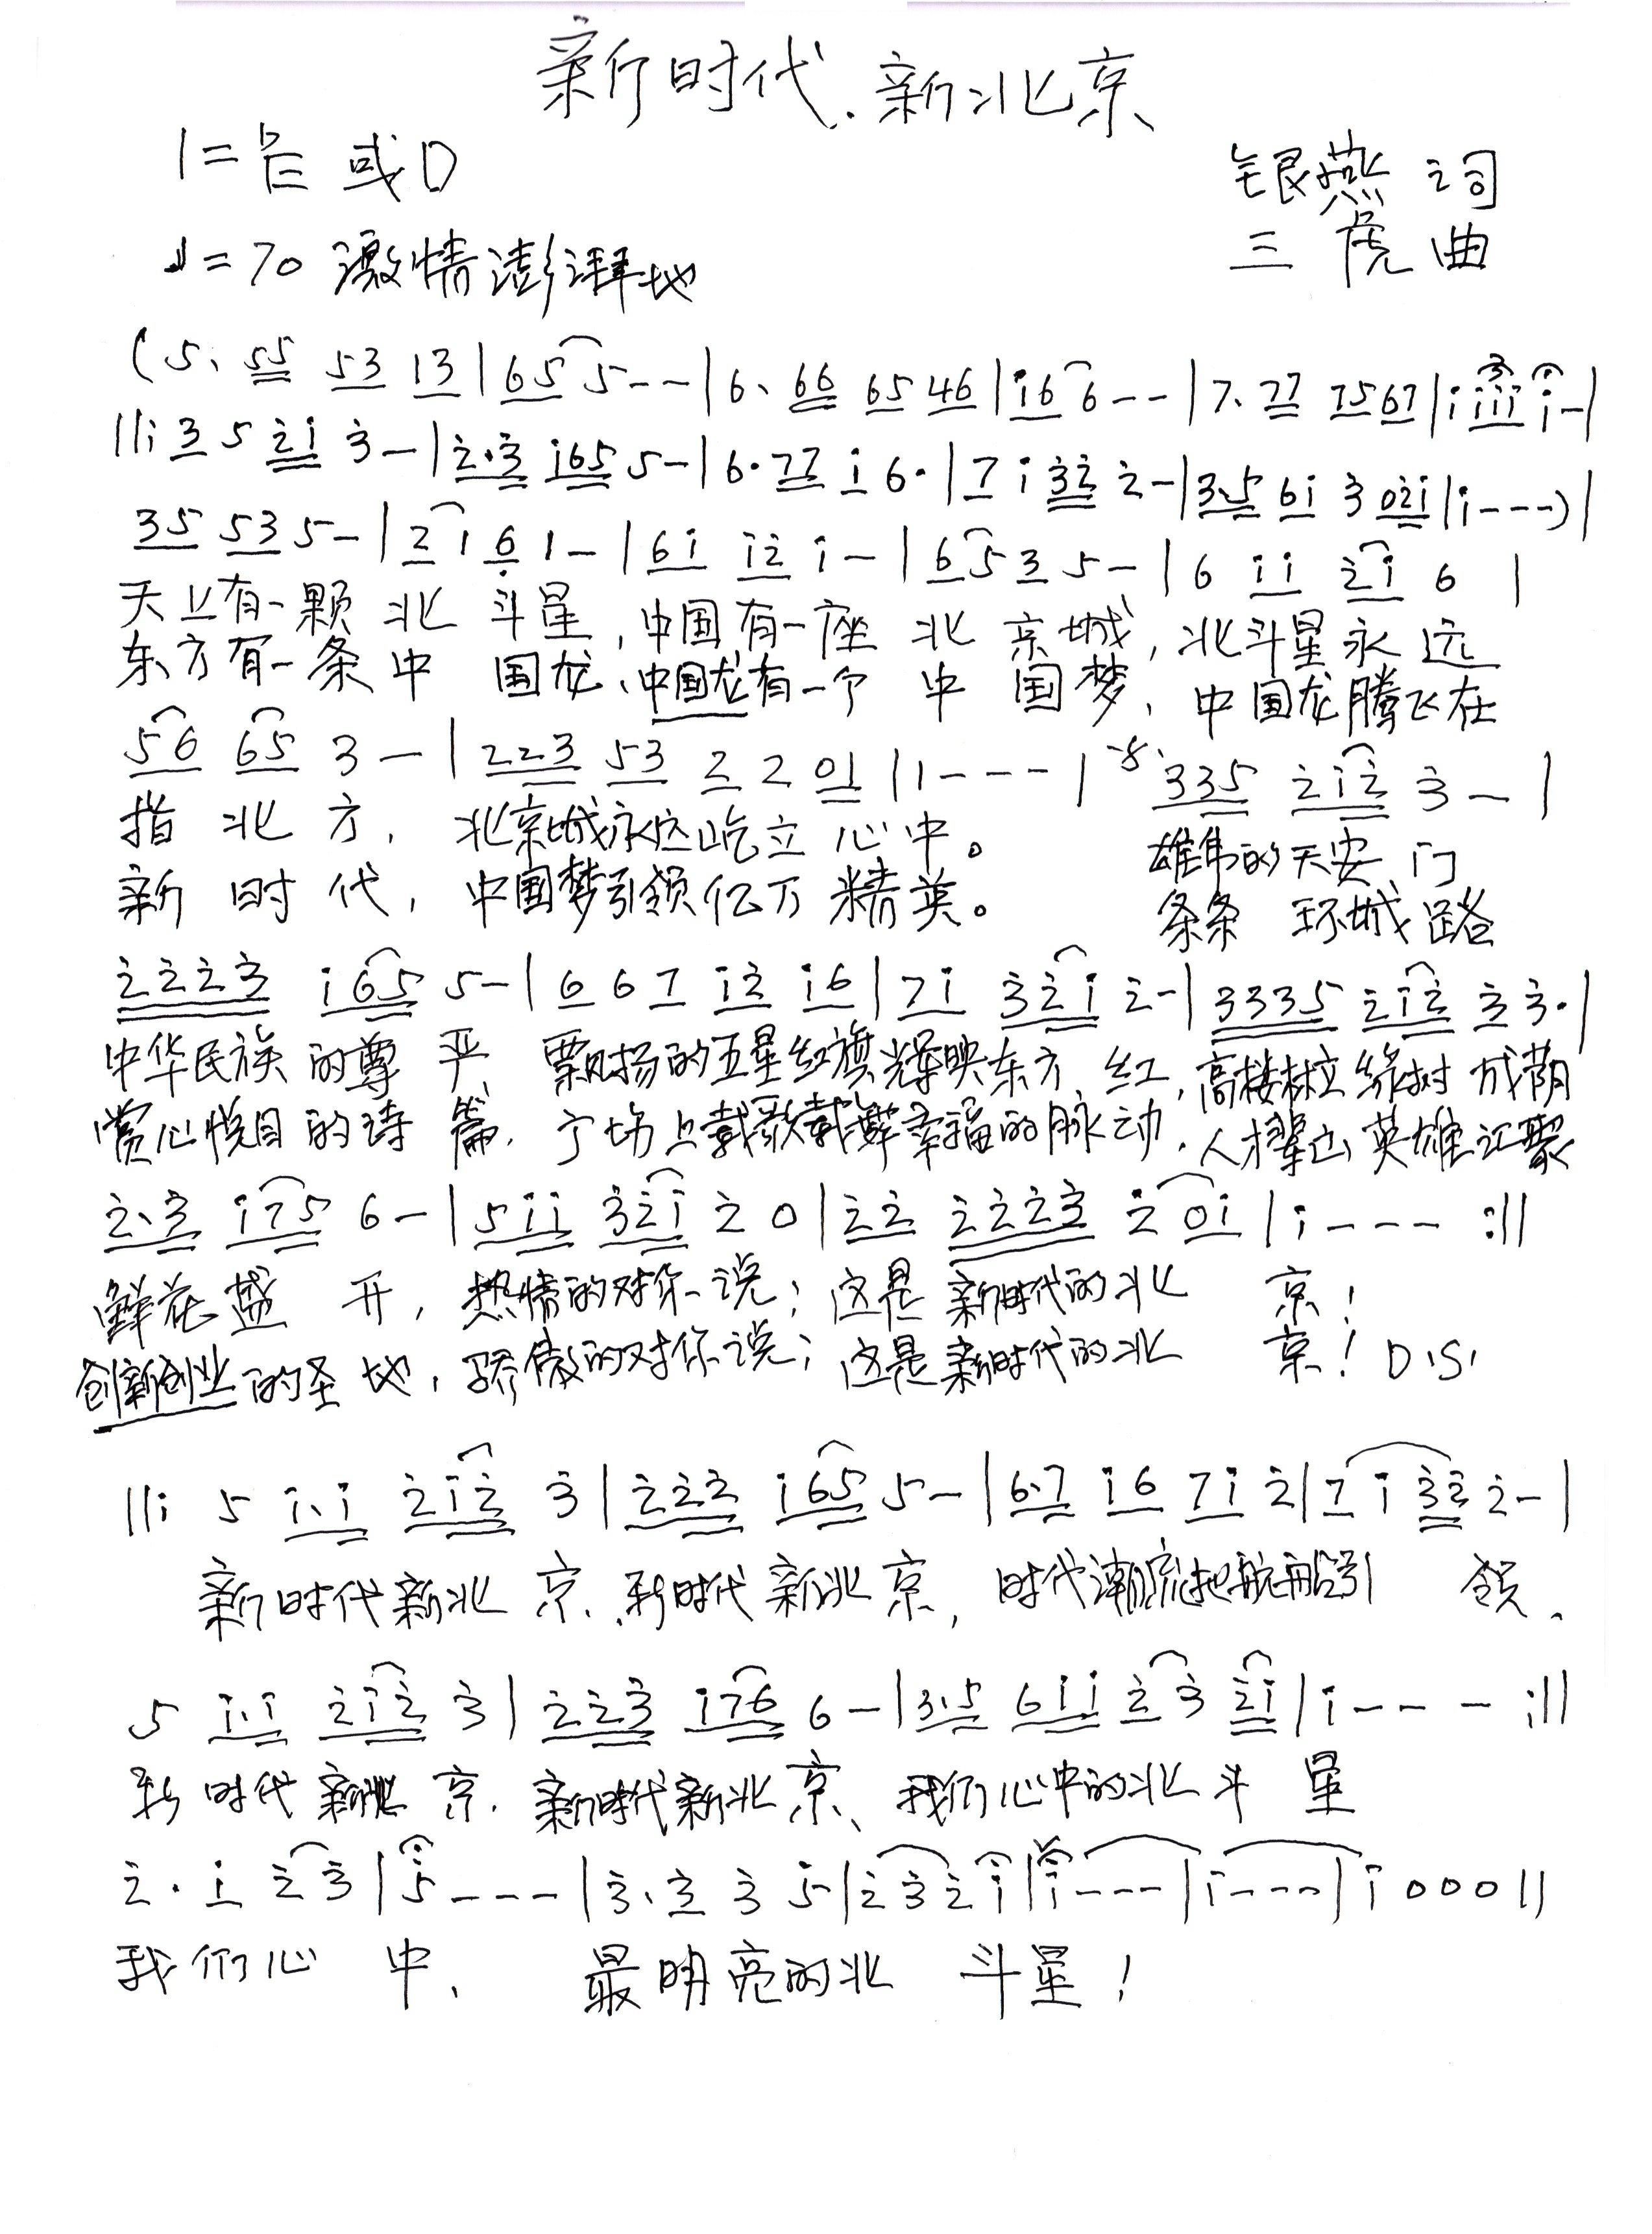 新时代.新北京
1=♭E 或D
银燕 词
♩=70 激情澎湃地
三虎 曲
(5. 55 53 13|65 5--|6. 66 65 46|i6 6--|7. 77 75 67|i iii i-|
||: 3 5 2i 3-|2.3 i65 5-|6.77 i 6.|7 i 32 2-|3.5 6i 3 02i|i---)|
35 53 5-|2 1 6 1-|6i i2 i-|65 3 5-|6 ii 2i 6|
天上有一颗 北 斗星,中国有一座 北 京城,北斗星永远
东方有一条 中 国龙、中国龙有一个 中 国梦,中国龙腾飞在
56 65 3-|223 53 2 2 01|1---| 335 2i2 3-|
指 北 方, 北京城永远屹立 心中。 雄伟的天安门
新 时 代, 中国梦引领亿万 精英。 条条 环城路
2223 i65 5-|6 67 i2 i6|7i 32i 2-|3335 2i2 3 3.|
中华民族的尊 严 飘扬的五星红旗辉映东方 红,高楼林立绿树成荫
赏心悦目的诗 篇. 广场上载歌载舞幸福的脉动.人才辈出英雄汇聚
2.3 i75 6-|5ii 32i 2 0|22 2223 2 0i|i--- :||
鲜花盛 开, 热情的对你说;这是新时代的北 京!
创新创业的圣地,骄傲的对你说;这是新时代的北 京! D.S.
||: 5 i.i 2i2 3|222 i65 5-|6.7 i6 7i 2|7 i 32 2-|
新时代新北 京.新时代新北京, 时代潮流起航船引 领、
5 i.i 2i2 3|223 i76 6-|3.5 6ii 2 3 2i|i--- :||
新时代新北 京. 新时代新北京、我们心中的北斗 星
2. i 2 3|5---|3. 3 3 5|2 3 2 i|i---|i---|i 000||
我们心 中、 最明亮的北 斗星!